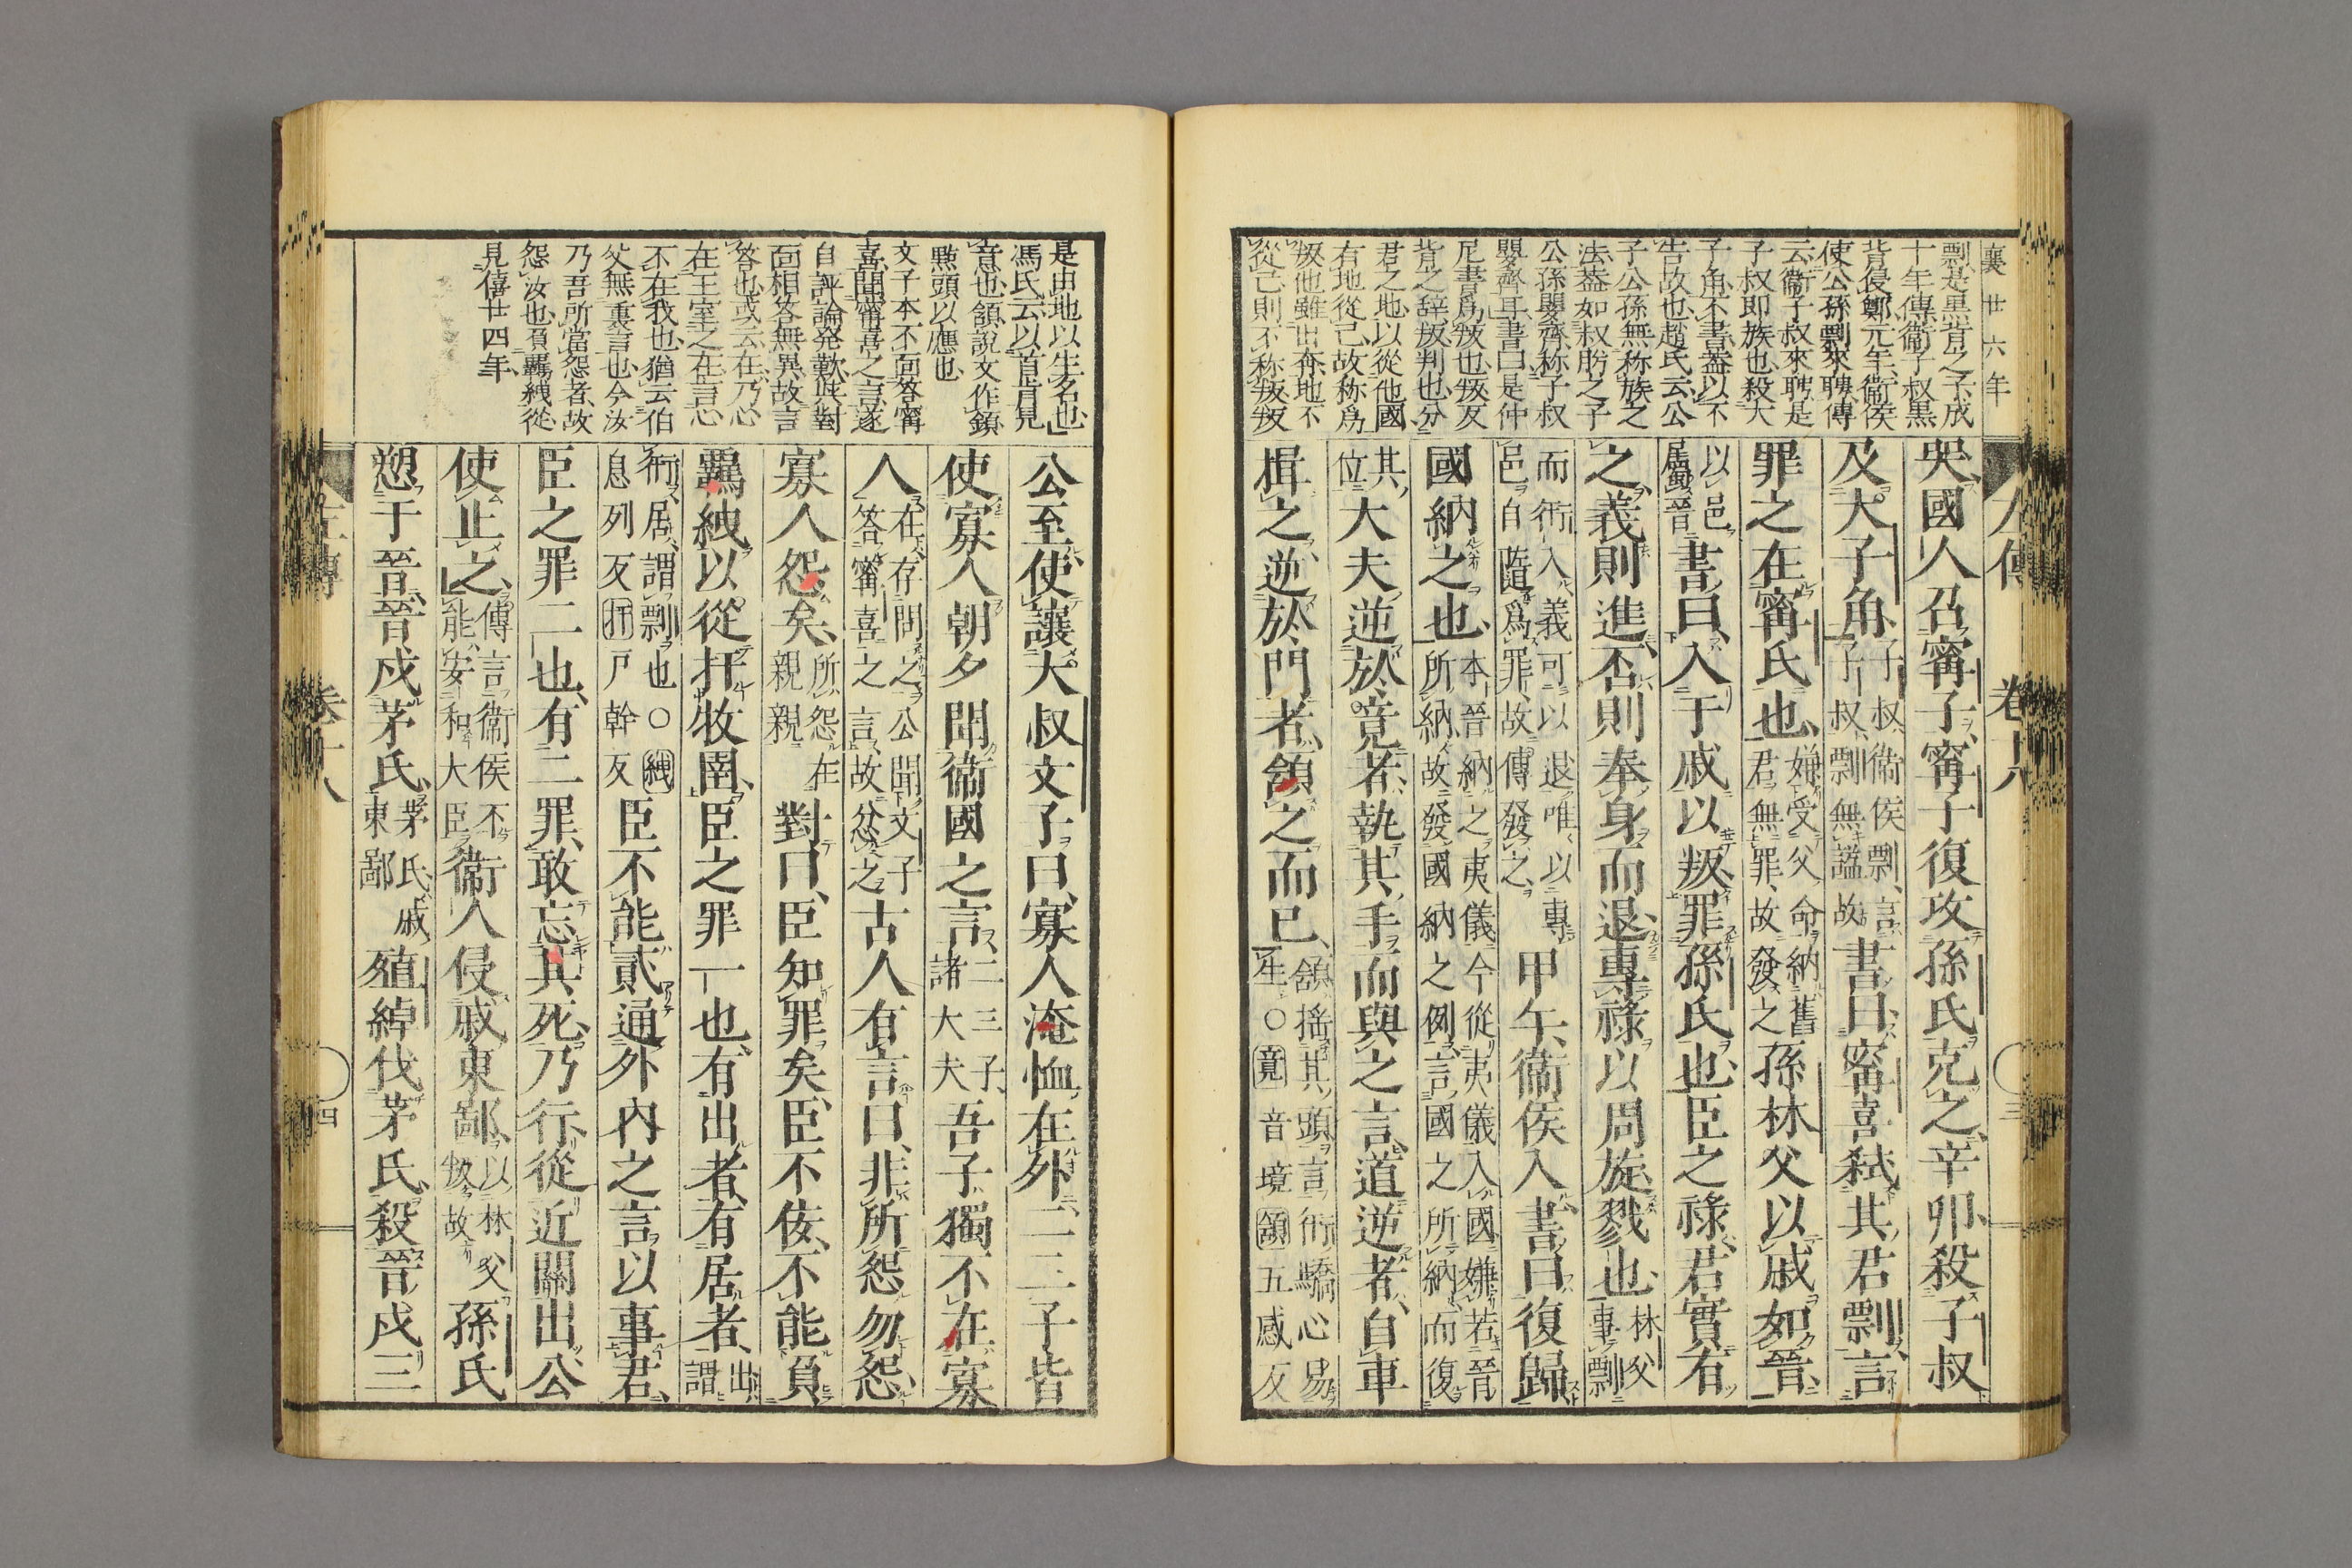 襄廿六年
剽是黒背之子成
十年傳衞子叔黒
背侵鄭元年衞侯
使公孫剽來聘傳
云衞子叔來聘是
子叔即族也殺大
子角不書蓋以不
告故也趙氏云公
子公孫無称族之
法蓋如叔肹之子
公孫嬰齊称子叔
嬰齊耳書曰是仲
尼書爲叛也叛反
背之辞叛判也分
君之地以從他國
有地從己故称爲
叛他雖出奔地不
從己則不称叛叛
哭國人召甯子甯子復攻孫氏克之辛卯殺子叔
及大子角子叔衞侯剽言子叔剽無謚故書曰甯喜弑其君剽言
罪之在甯氏也嫌受父命納舊君無罪故發之孫林父以戚如晉
以邑屬晉書曰入于戚以叛罪孫氏也臣之祿君實有
之義則進否則奉身而退專祿以周旋戮也林父事剽
而衎入義可以退唯以專邑自隨爲罪故傳發之甲午衞侯入書曰復歸
國納之也本晉納之夷儀今從夷儀入國嫌若晉所納故發國納之例言國之所納而復
其位大夫逆於竟者執其手而與之言道逆者自車
揖之逆於門者頷之而已頷搖其頭言衎驕心易生○竟音境頷五感反
左傳 卷十八 三
是由地以生名也
馮氏云以首肯見
意也頷說文作鎮
㸃頭以應也
文子本不面答甯
喜聞甯喜之言遂
自評論発歎與對
面相答無異故言
答也或云在乃心
在王室之在言心
不在我也猶云伯
父無裏言也今汝
乃吾所當怨者故
怨汝也負羈絏從
見僖廿四年
公至使讓大叔文子曰寡人淹恤在外二三子皆
使寡人朝夕聞衞國之言二三子諸大夫吾子獨不在寡
人在存問之公聞文子答甯喜之言故忿之古人有言曰非所怨勿怨
寡人怨矣所怨在親親對曰臣知罪矣臣不佞不能負
羈絏以從扞牧圉臣之罪一也有出者有居者出謂
衎居謂剽也○絏息列反扞戸幹反臣不能貳通外內之言以事君
臣之罪二也有二罪敢忘其死乃行從近關出公
使止之傳言衞侯不能安和大臣衞人侵戚東鄙以林父叛故孫氏
愬于晉晉戍茅氏茅氏戚東鄙殖綽伐茅氏殺晉戍三
左傳 卷十八 四